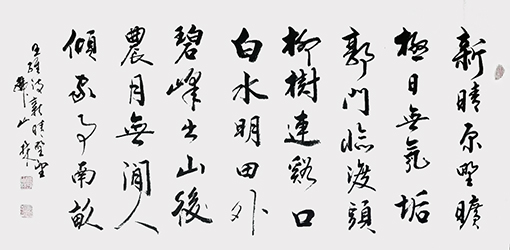 新晴原野曠
極目無氛垢
郭門臨渡頭
柳樹連谿口
白水明田外
碧峰出山後
農月無閒人
傾家事南畝
王維詩新晴野望